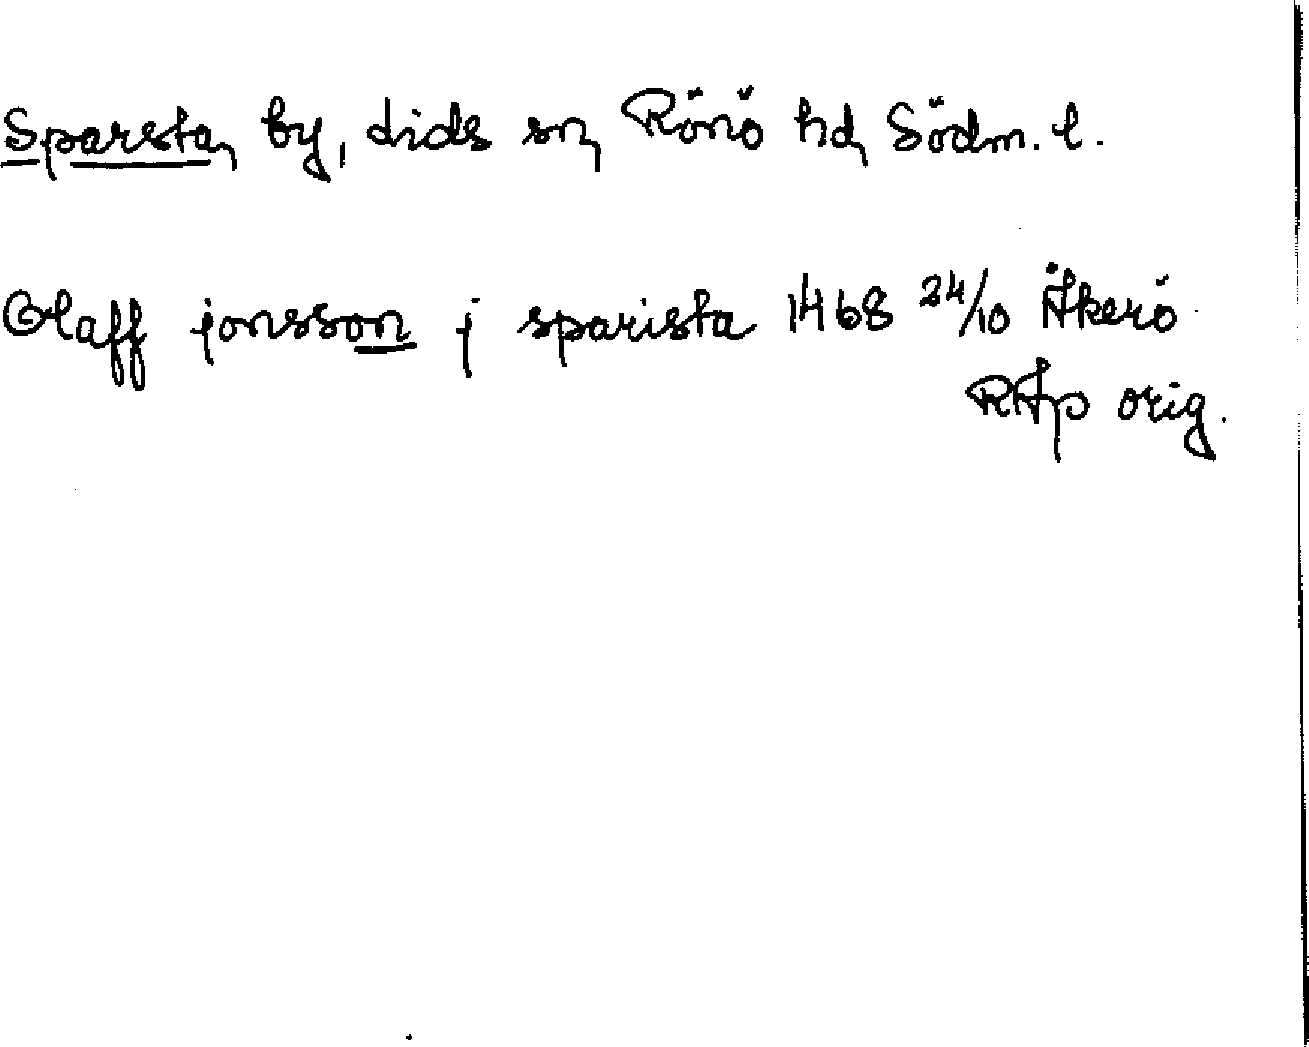 Sparsta, by, Lids sn, Rönö hd, Södm. l.
Olaff jonsson j sparista 1468 24/10 Åkerö
RAp orig.